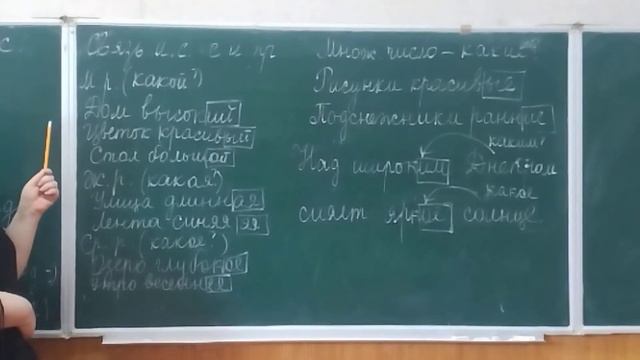 Связь и.с. с и. пр
М.р. (какой?)
Дом высокий
Цветок красивый
Стол большой
Ж.р. (какая?)
Улица длинная
Лента синяя яя
Ср.р. (какое?)
Озеро глубокое
Утро весеннее
Множ число - какие?
Рисунки красивые
Подснежники ранние
каким?
Над широким Днепром
какое
сияет яркое солнце